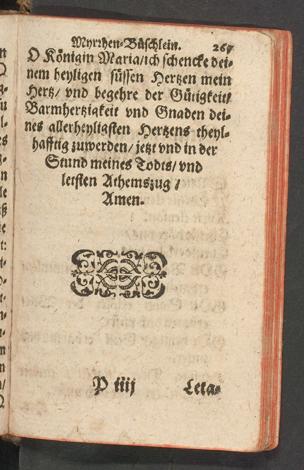 Myrrhen-Büschlein. 267
O Königin Maria/ich schencke dei-
nem heyligen süssen Hertzen mein
Hertz/ vnd begehre der Gütigkeit/
Barmhertzigkeit vnd Gnaden dei-
nes allerheyligsten Hertzens theyl-
hafftig zuwerden/ jetzt vnd in der
Stund meines Todts/ vnd
letsten Athemszug /
Amen.
P iiij Leta-